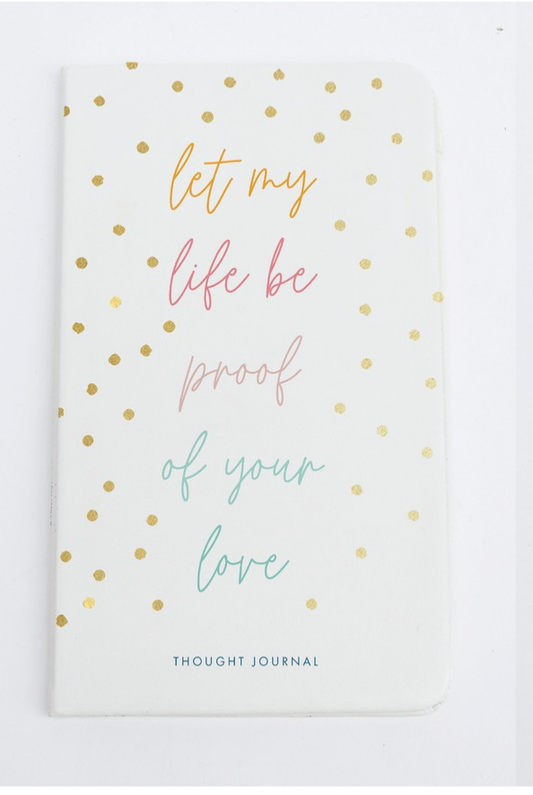 let my
life be
proof
of your
love
THOUGHT JOURNAL